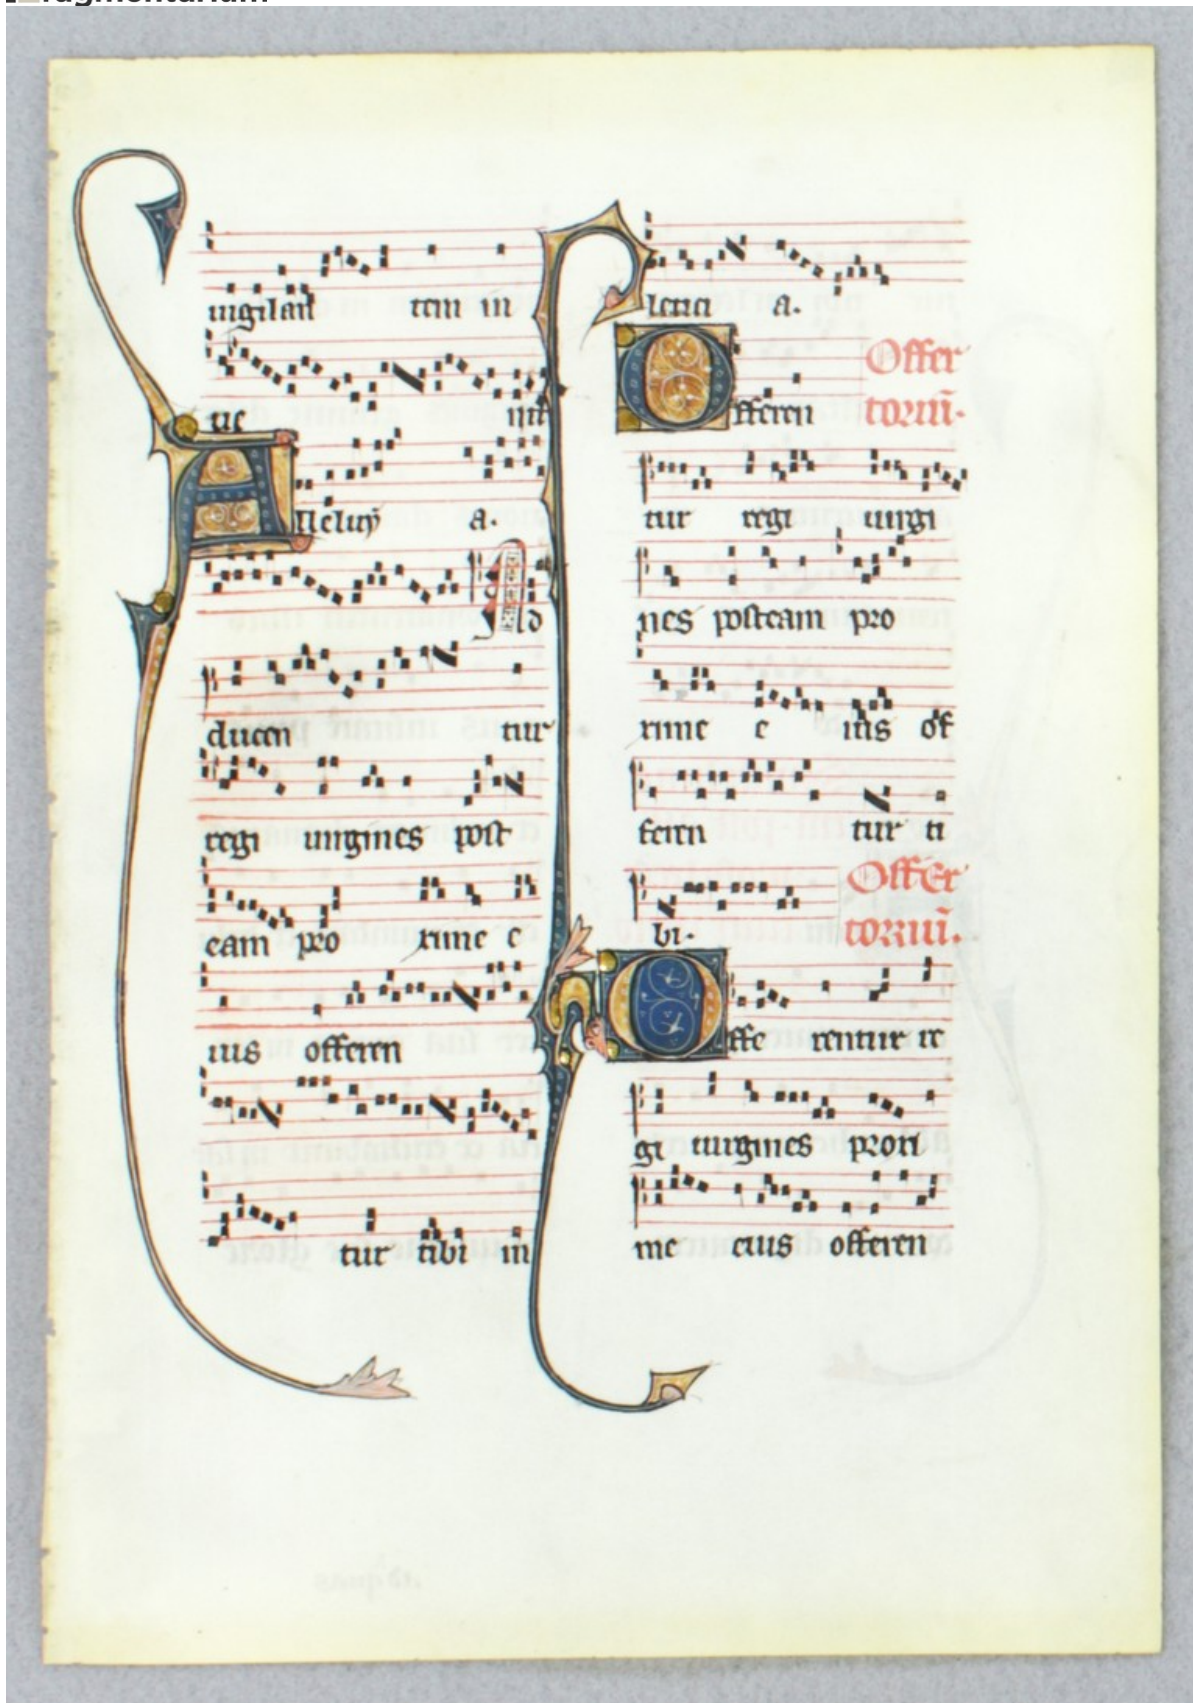 ragmentarium
uigilan tem in
ue
Alleluy a.
Ad
ducen tur
regi uirgines post
eam pro xime e
ius offeren
tur tibi in
leticia a.
Offer
Offeren torium.
tur regi uirgi
nes posteam pro
xime e ius of
feren tur ti
Offer
bi. torium.
Offe rentur re
gi uirgines proxi
me eius offeren